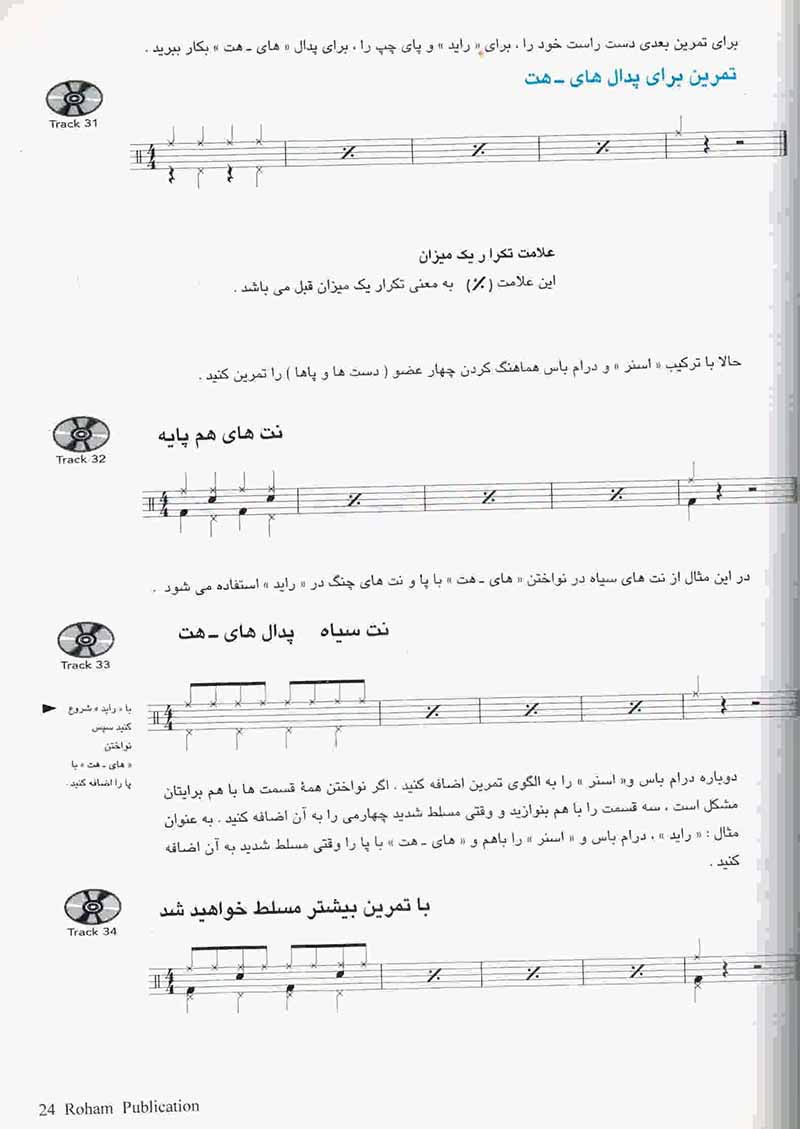 برای تمرین بعدی دست راست خود را ، برای « راید » و پای چپ را ، برای پدال « های ـ هت » بکار ببرید .
تمرین برای پدال های ـ هت
Track 31
علامت تکرا ر یک میزان
این علامت (٪) به معنی تکرار یک میزان قبل می باشد .
حالا با ترکیب « اسنر » و درام باس هماهنگ کردن چهار عضو ( دست ها و پاها ) را تمرین کنید .
نت های هم پایه
Track 32
در این مثال از نت های سیاه در نواختن « های ـ هت » با پا و نت های چنگ در « راید » استفاده می شود .
نت سیاه پدال های ـ هت
Track 33
با « راید » شروع
کنید سپس
نواختن
« های ـ هت » با
پا را اضافه کنید .
دوباره درام باس و« اسنر » را به الگوی تمرین اضافه کنید . اگر نواختن همهٔ قسمت ها با هم برایتان
مشکل است ، سه قسمت را با هم بنوازید و وقتی مسلط شدید چهارمی را به آن اضافه کنید . به عنوان
مثال : « راید » ، درام باس و « اسنر » را باهم و « های ـ هت » با پا را وقتی مسلط شدید به آن اضافه
کنید .
با تمرین بیشتر مسلط خواهید شد
Track 34
24 Roham Publication